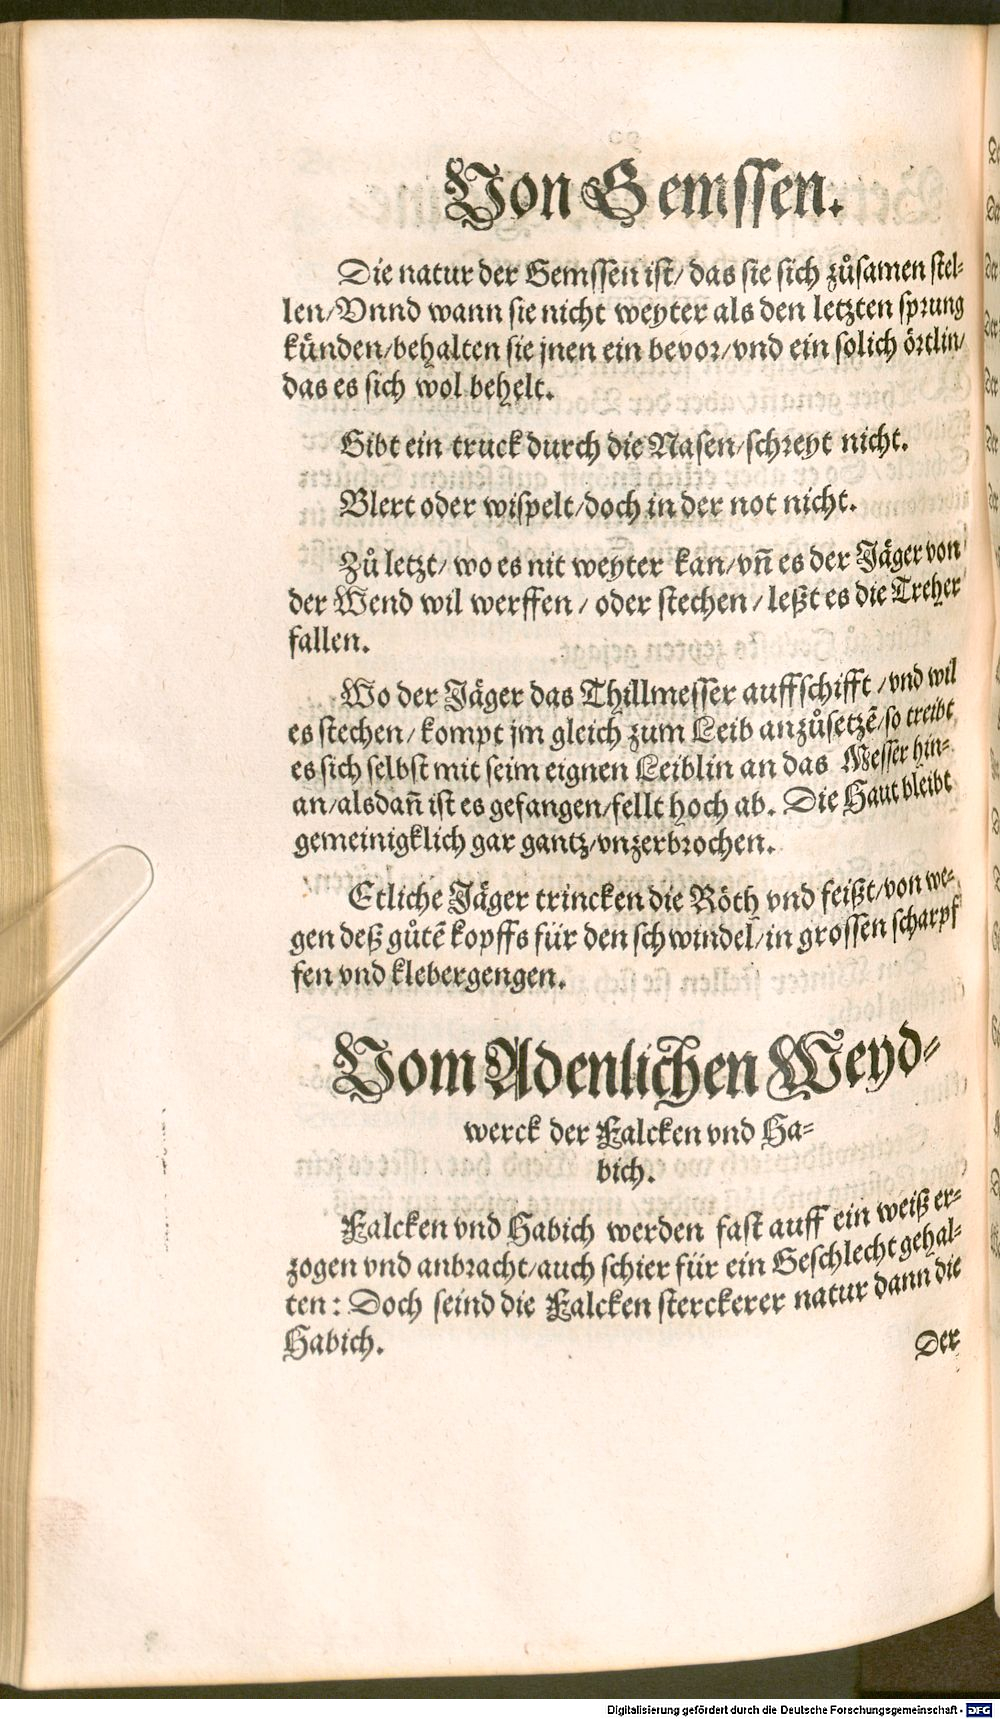 Von Gemssen.
Die natur der Gemssen ist/ das sie sich zůsamen stel-
len/Vnnd wann sie nicht weyter als den letzten sprung
künden/behalten sie jnen ein bevor/vnd ein solich örtlin/
das es sich wol behelt.
Gibt ein truck durch die Nasen/schreyt nicht.
Blert oder wispelt/doch in der not nicht.
Zů letzt/ wo es nit weyter kan/vñ es der Jäger von
der Wend wil werffen/ oder stechen/ leßt es die Treher
fallen.
Wo der Jäger das Thillmesser auffschifft/vnd wil
es stechen/ kompt jm gleich zum Leib anzůsetzẽ/so treibt
es sich selbst mit seim eignen Leiblin an das Messer hin-
an/alsdañ ist es gefangen/fellt hoch ab. Die Haut bleibt
gemeinigklich gar gantz/vnzerbrochen.
Etliche Jäger trincken die Röth vnd feißt/von we-
gen deß gůtẽ kopffs für den schwindel/in grossen scharpf
fen vnd klebergengen.
Vom Adenlichen Weyd-
werck der Falcken vnd Ha-
bich.
Falcken vnd Habich werden fast auff ein weiß er-
zogen vnd anbracht/auch schier für ein Geschlecht gehal-
ten: Doch seind die Falcken sterckerer natur dann die
Habich.
Der
Digitalisierung gefördert durch die Deutsche Forschungsgemeinschaft - DFG